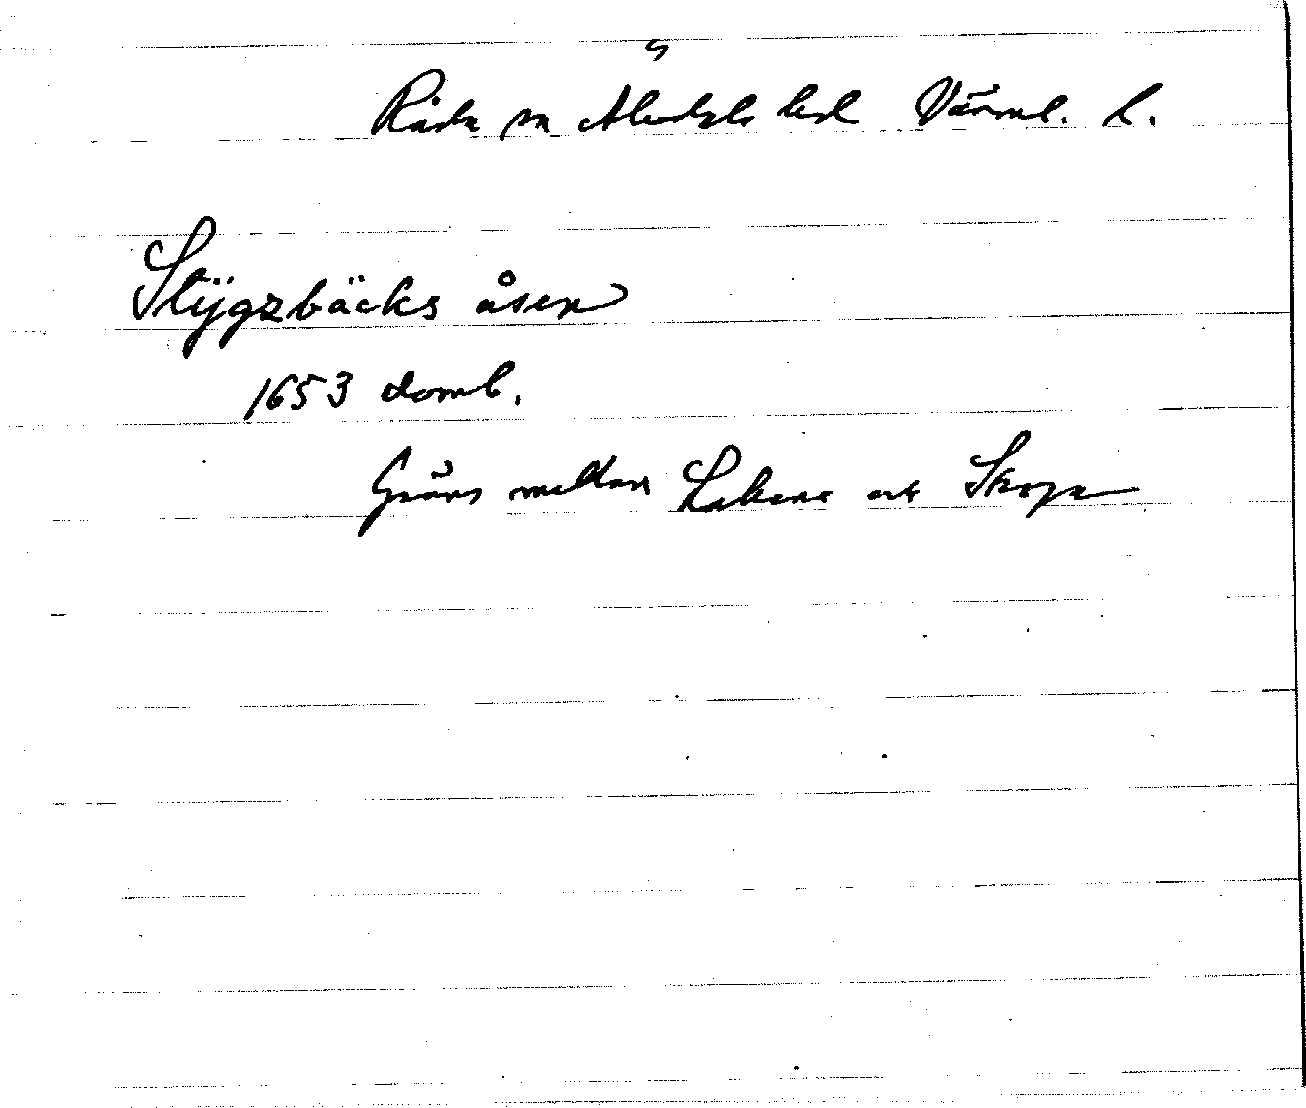 Råda sn Älvdals hd Värml. l.
Stÿgzbäcks åsen
1653 domb.
Gräns mellan Lakene och Skoga